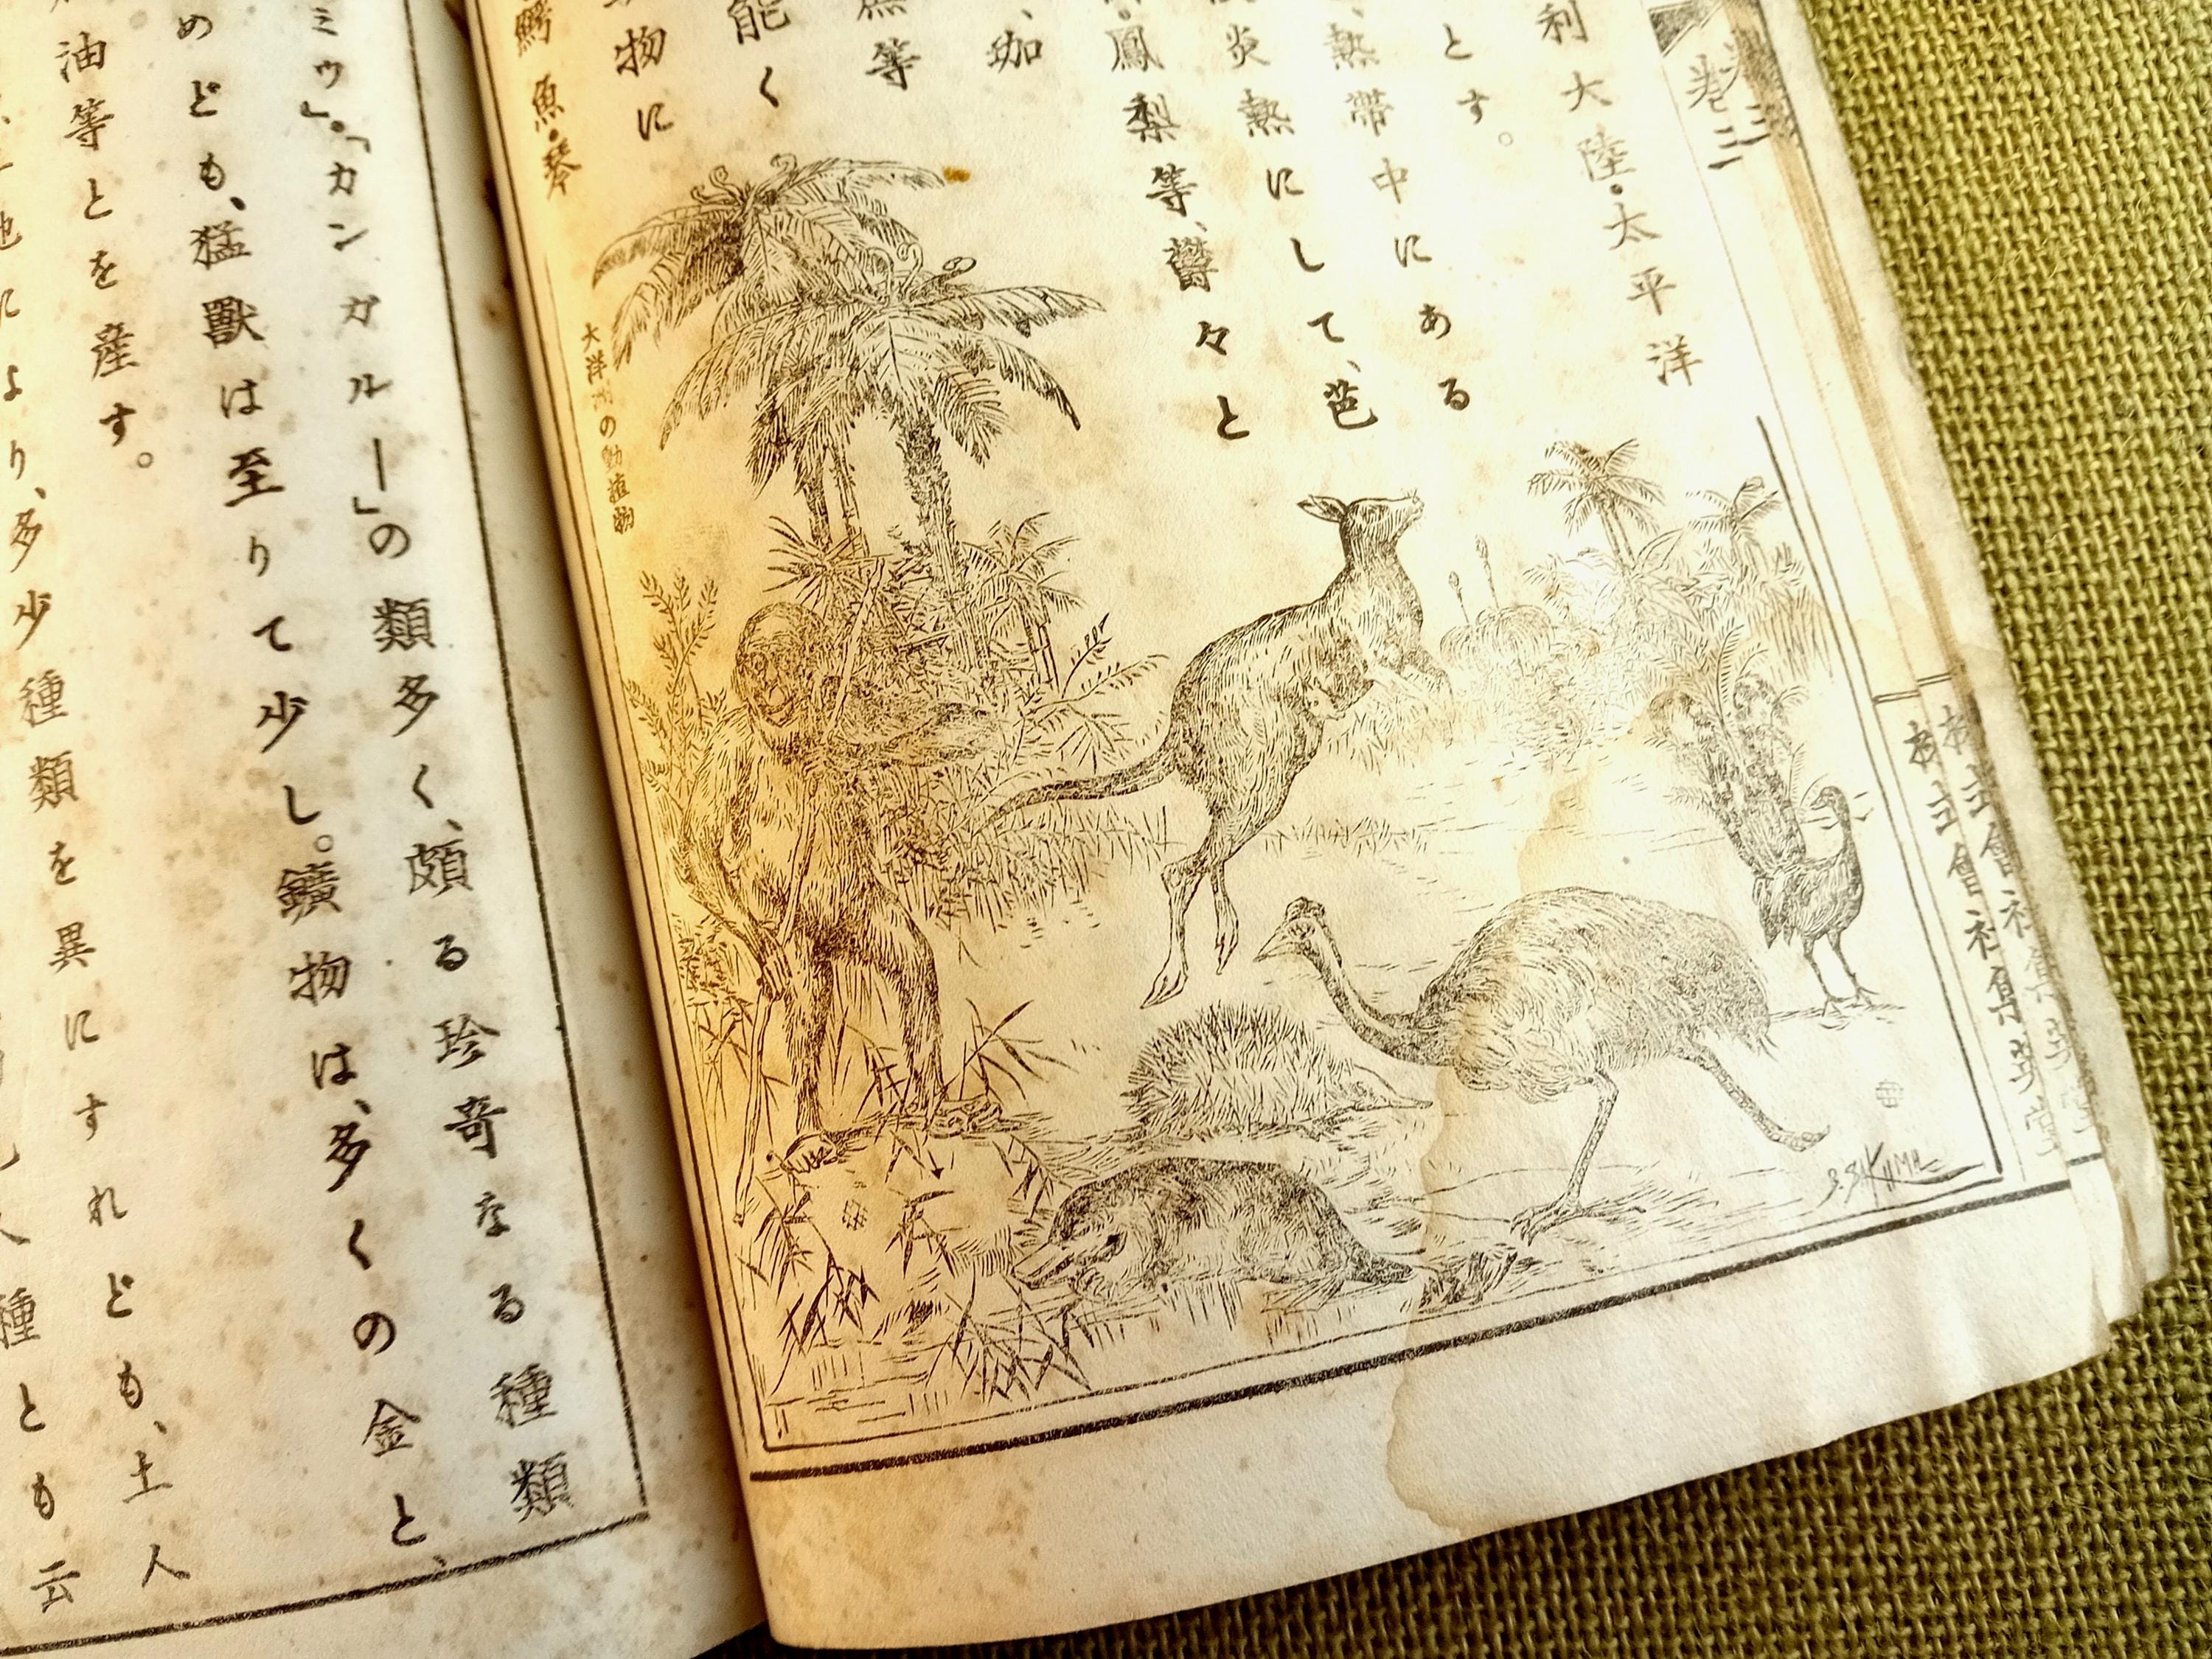 卷三
利大陸・太平洋
とす。
熱帶中にある
炎熱にして、芭
鳳梨等、鬱々と
、珈
等
能く
物に
鰐魚・琴
大洋洲の動植物
S.SAKUMA
株式會社集英堂
ミウ」・「カンガルー」の類多く、頗る珍奇なる種類
めども、猛獸は至りて少し。鑛物は、多くの金と、
油等とを産す。
地により、多少種類を異にすれども、土人
種とも云